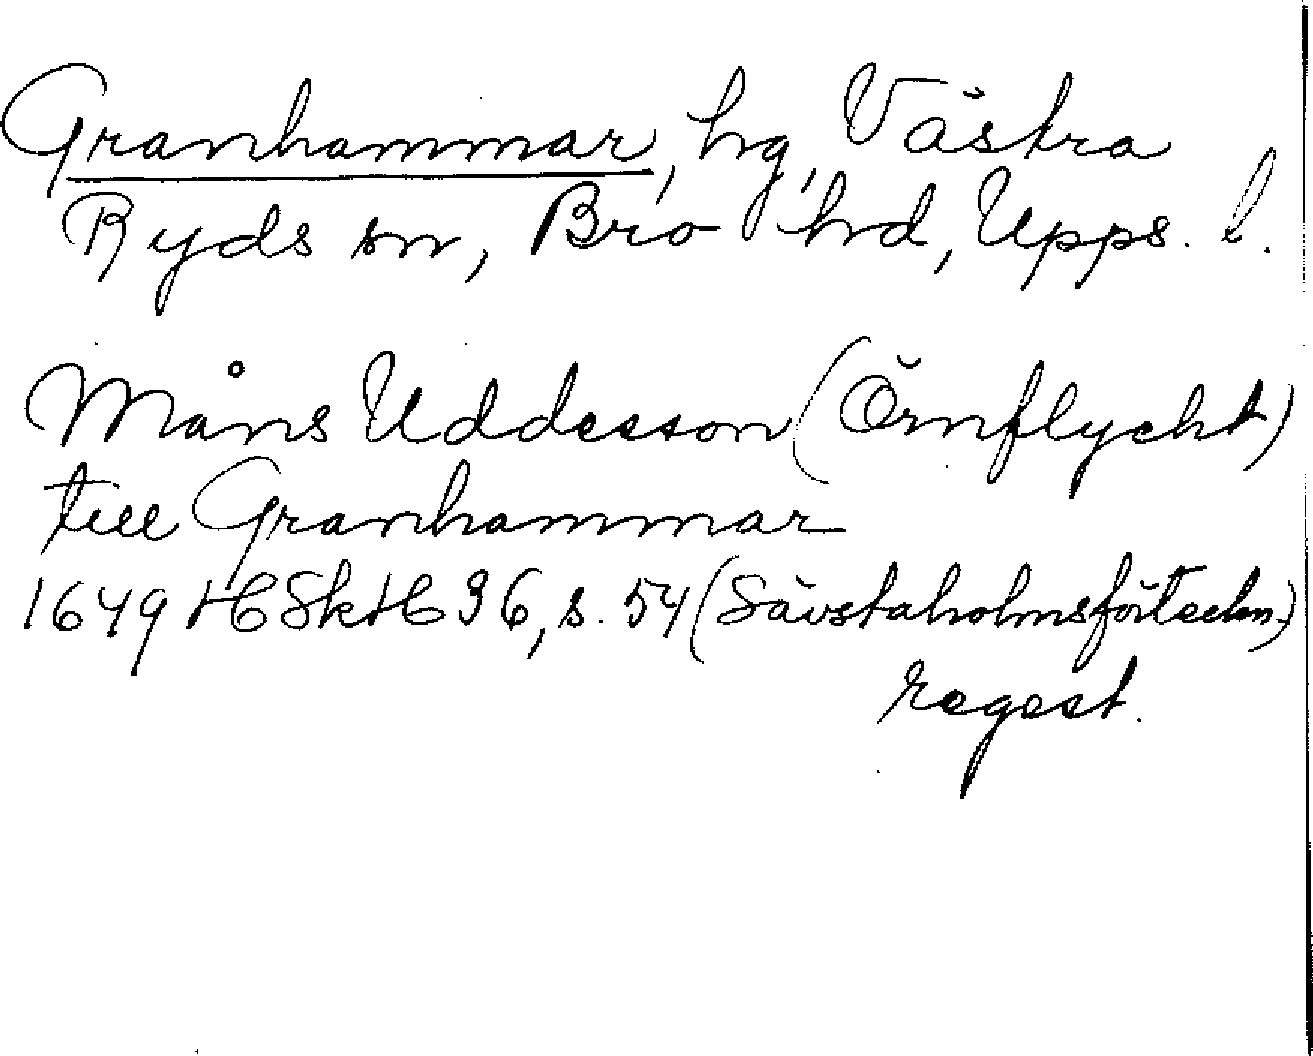 Granhammar, hg, Västra
Ryds sn, Bro hd, Upps. l.
Måns Uddesson (Örnflycht)
till Granhammar
1649 HSkH 36, s. 54 (Sävstaholmsförteckn.)
regest.